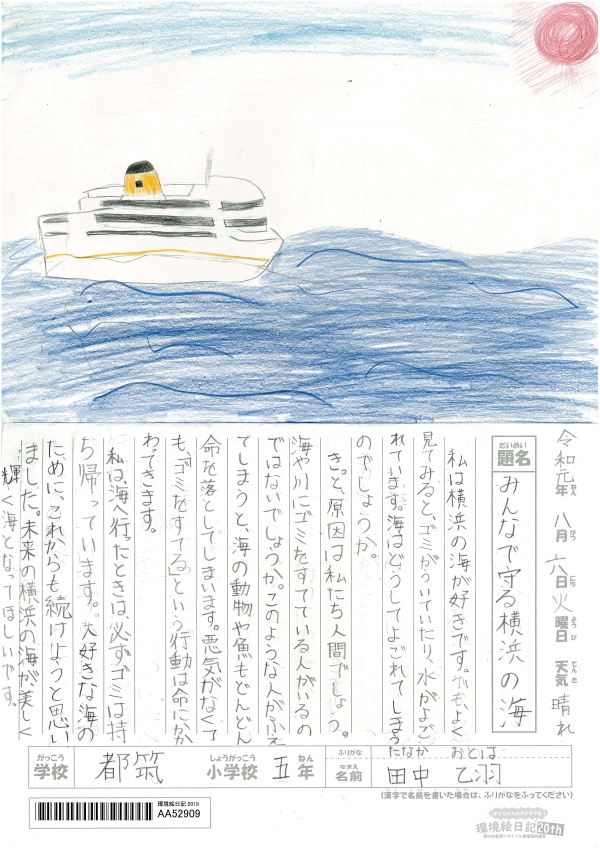 令和元年 八月 六日 火曜日 天気 晴れ
ねん がつ にち ようび てんき
だいめい
題名 みんなで守る横浜の海
私は横浜の海が好きです。でも、よく
見てみると、ゴミがういていたり、水がよご
れています。海はどうしてよごれてしまう
のでしょうか。
きっと、原因は私たち人間でしょう。
海や川にゴミをすてている人がいるの
ではないでしょうか。このような人がふえ
てしまうと、海の動物や魚もどんどん
命を落としてしまいます。悪気がなくて
も、ゴミをすてるという行動は命にかか
わってきます。
私は、海へ行ったときは、必ずゴミは持
ち帰っています。大好きな海の
ために、これからも続けようと思い
ました。未来の横浜の海が、美しく
輝く海となってほしいです。
がっこう しょうがっこう ねん ふりがな たなか おとは
学校 都筑 小学校 五年 なまえ 名前 田中 乙羽
(漢字で名前を書いた場合は、ふりがなをふってください)
環境絵日記2019
AA52909
環境絵日記20th